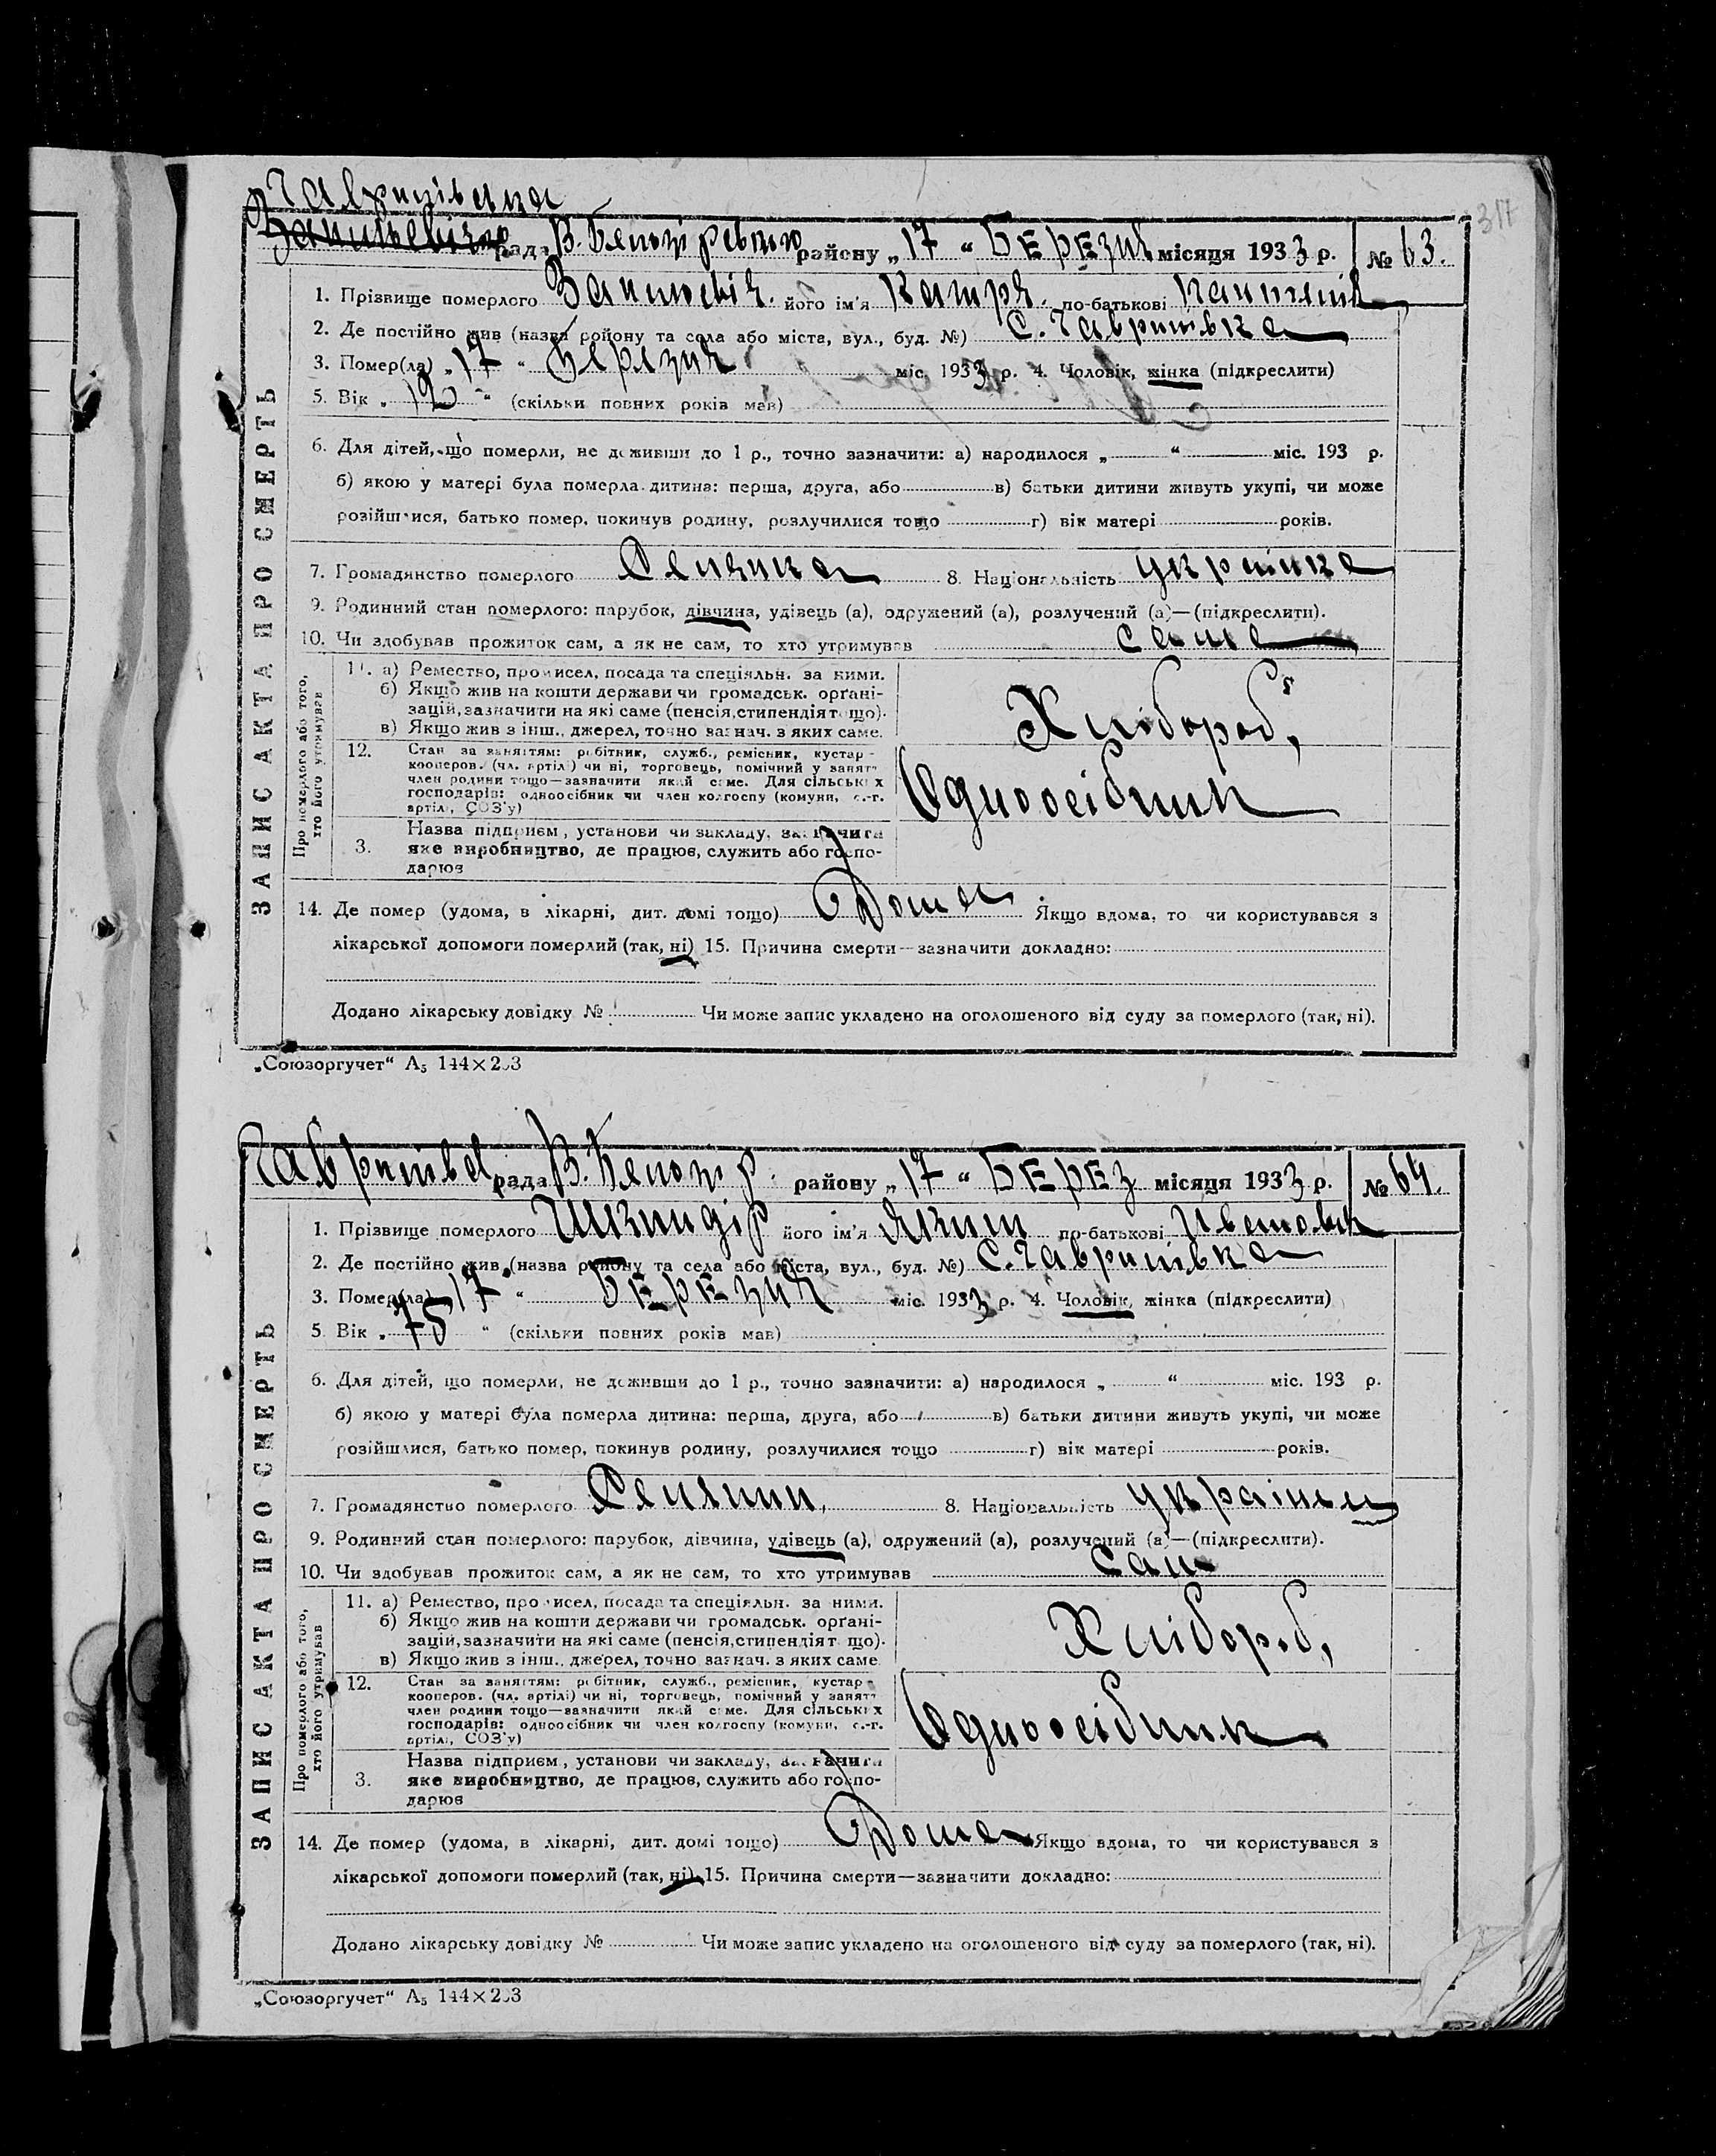 317
Гавришівка
рада В. Білозірського району „17“ Березня місяця 1933 р. № 63.
ЗАПИС АКТА ПРО СМЕРТЬ
1. Прізвище померлого його ім'я Катря по-батькові
2. Де постійно жив (назва району та села або міста, вул., буд. №) С. Гавришівка
3. Помер(ла) „17“ Березня міс. 1933 р. 4. Чоловік, жінка (підкреслити)
5. Вік „12“ (скільки повних років мав)
6. Для дітей, що померли, не доживши до 1 р., точно зазначити: а) народилося „ “ міс. 193 р.
б) якою у матері була померла дитина: перша, друга, або в) батьки дитини живуть укупі, чи може
розійшлися, батько помер, покинув родину, розлучилися тощо г) вік матері років.
7. Громадянство померлого Селянка 8. Національність українка
9. Родинний стан померлого: парубок, дівчина, удівець (а), одружений (а), розлучений (а)—(підкреслити).
10. Чи здобував прожиток сам, а як не сам, то хто утримував сама
Про померлого або того, хто його утримував
11. а) Ремество, промисел, посада та спеціяльн. за ними.
б) Якщо жив на кошти держави чи громадськ. орґані-
зацій, зазначити на які саме (пенсія, стипендія тощо).
в) Якщо жив з інш., джерел, точно зазнач. з яких саме.
Хлібороб,
12. Стан за заняттям: робітник, служб., ремісник, кустар-
кооперов. (чл. артілі) чи ні, торговець, помічний у занятт
член родини тощо—зазначити який саме. Для сільських
господарів: одноосібник чи член колгоспу (комуни, с.-г.
артілі, СОЗ'у)
Одноосібник
3. Назва підприєм., установи чи закладу, зазначити
яке виробництво, де працює, служить або госпо-
дарює
14. Де помер (удома, в лікарні, дит. домі тощо) Дома Якщо вдома, то чи користувався з
лікарської допомоги померлий (так, ні) 15. Причина смерти—зазначити докладно:
Додано лікарську довідку № Чи може запис укладено на оголошеного від суду за померлого (так, ні).
„Союзоргучет“ А₅ 144×203
рада В. Білозір. району „17“ Берез місяця 1933 р. № 64.
ЗАПИС АКТА ПРО СМЕРТЬ
1. Прізвище померлого його ім'я Яким по-батькові Іванович
2. Де постійно жив (назва району та села або міста, вул., буд. №) С. Гавришівка
3. Помер(ла) „17“ Березня міс. 1933 р. 4. Чоловік, жінка (підкреслити)
5. Вік „75“ (скільки повних років мав)
6. Для дітей, що померли, не доживши до 1 р., точно зазначити: а) народилося „ “ міс. 193 р.
б) якою у матері була померла дитина: перша, друга, або в) батьки дитини живуть укупі, чи може
розійшлися, батько помер, покинув родину, розлучилися тощо г) вік матері років.
7. Громадянство померлого Селянин, 8. Національність українець
9. Родинний стан померлого: парубок, дівчина, удівець (а), одружений (а), розлучений (а)—(підкреслити).
10. Чи здобував прожиток сам, а як не сам, то хто утримував Сам
Про померлого або того, хто його утримував
11. а) Ремество, промисел, посада та спеціяльн. за ними.
б) Якщо жив на кошти держави чи громадськ. орґані-
зацій, зазначити на які саме (пенсія, стипендія тощо).
в) Якщо жив з інш., джерел, точно зазнач. з яких саме.
Хлібороб,
12. Стан за заняттям: робітник, служб., ремісник, кустар-
кооперов. (чл. артілі) чи ні, торговець, помічний у занятт
член родини тощо—зазначити який саме. Для сільських
господарів: одноосібник чи член колгоспу (комуни, с.-г.
артілі, СОЗ'у)
Одноосібник
3. Назва підприєм., установи чи закладу, зазначити
яке виробництво, де працює, служить або госпо-
дарює
14. Де помер (удома, в лікарні, дит. домі тощо) Дома Якщо вдома, то чи користувався з
лікарської допомоги померлий (так, ні) 15. Причина смерти—зазначити докладно:
Додано лікарську довідку № Чи може запис укладено на оголошеного від суду за померлого (так, ні).
„Союзоргучет“ А₅ 144×203